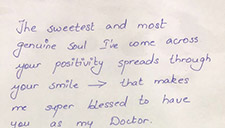 The sweetest and most
genuine soul I've come across
your positivity spreads through
your smile → that makes
me super blessed to have
you as my Doctor.